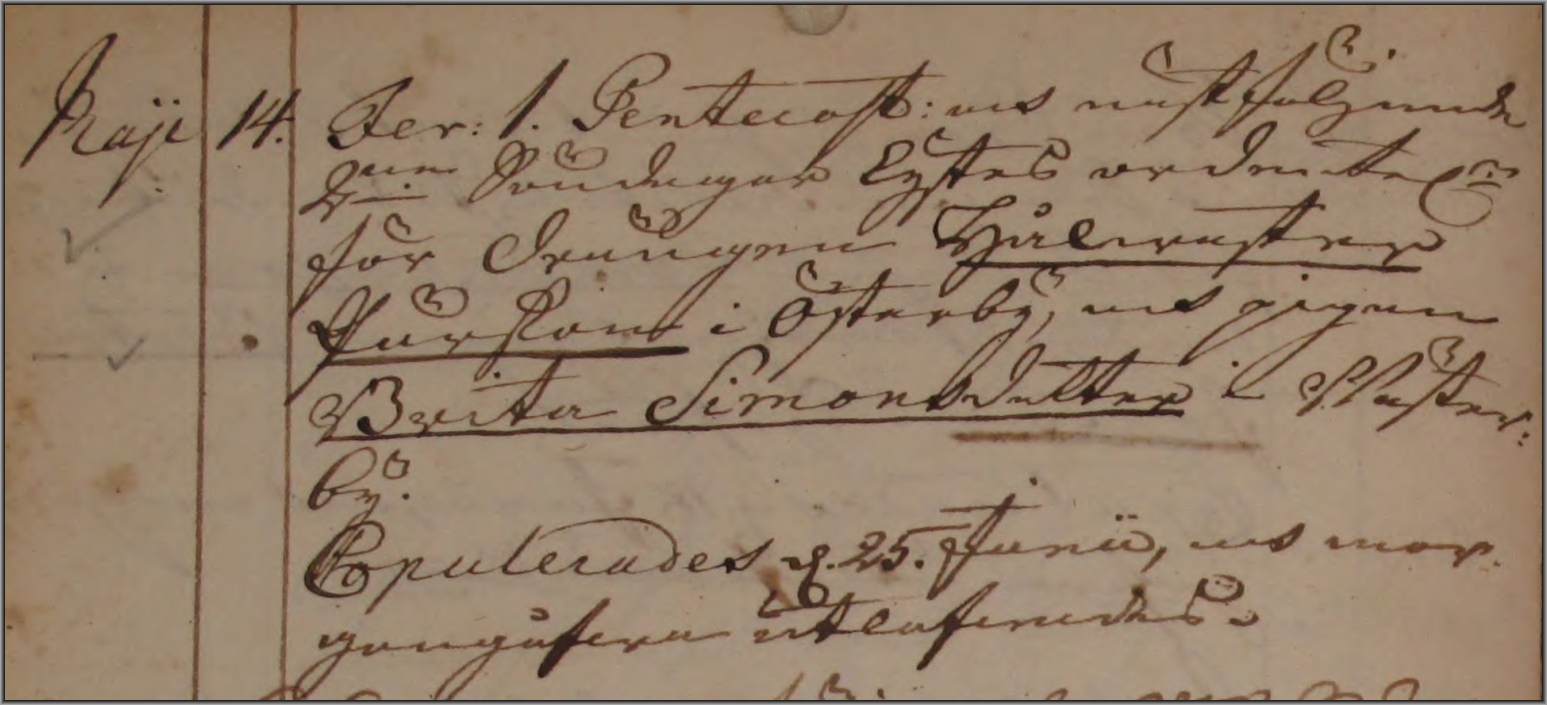 Maji 14. Fer: 1. Pentecost: och nästföljande
2:ne Söndagar Lystes ordentel:n
för Drängen Hålwaster
Pärsson i Österby, och pigan
Brita Simonsdotter i Väster:
by.
Copulerades d. 25. Junii, och mor-
gongåfwa utlåfwades.